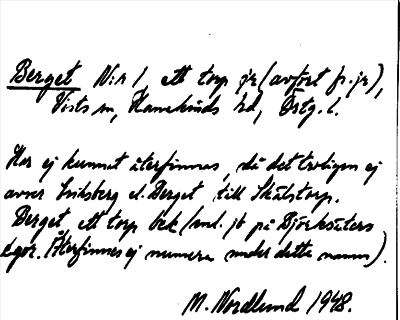 Berget N:r 1 ett torp jr (avfört fr. jr),
Vists sn, Hanekinds hd, Östg. l.
Har ej kunnat återfinnas, då det troligen ej
avser Eriksberg el. Berget till Skälstorp.
Berget, ett torp (ml. jb på Björksäters
ägor. Återfinnes ej numera under detta namn).
M. Nordlund 1948.